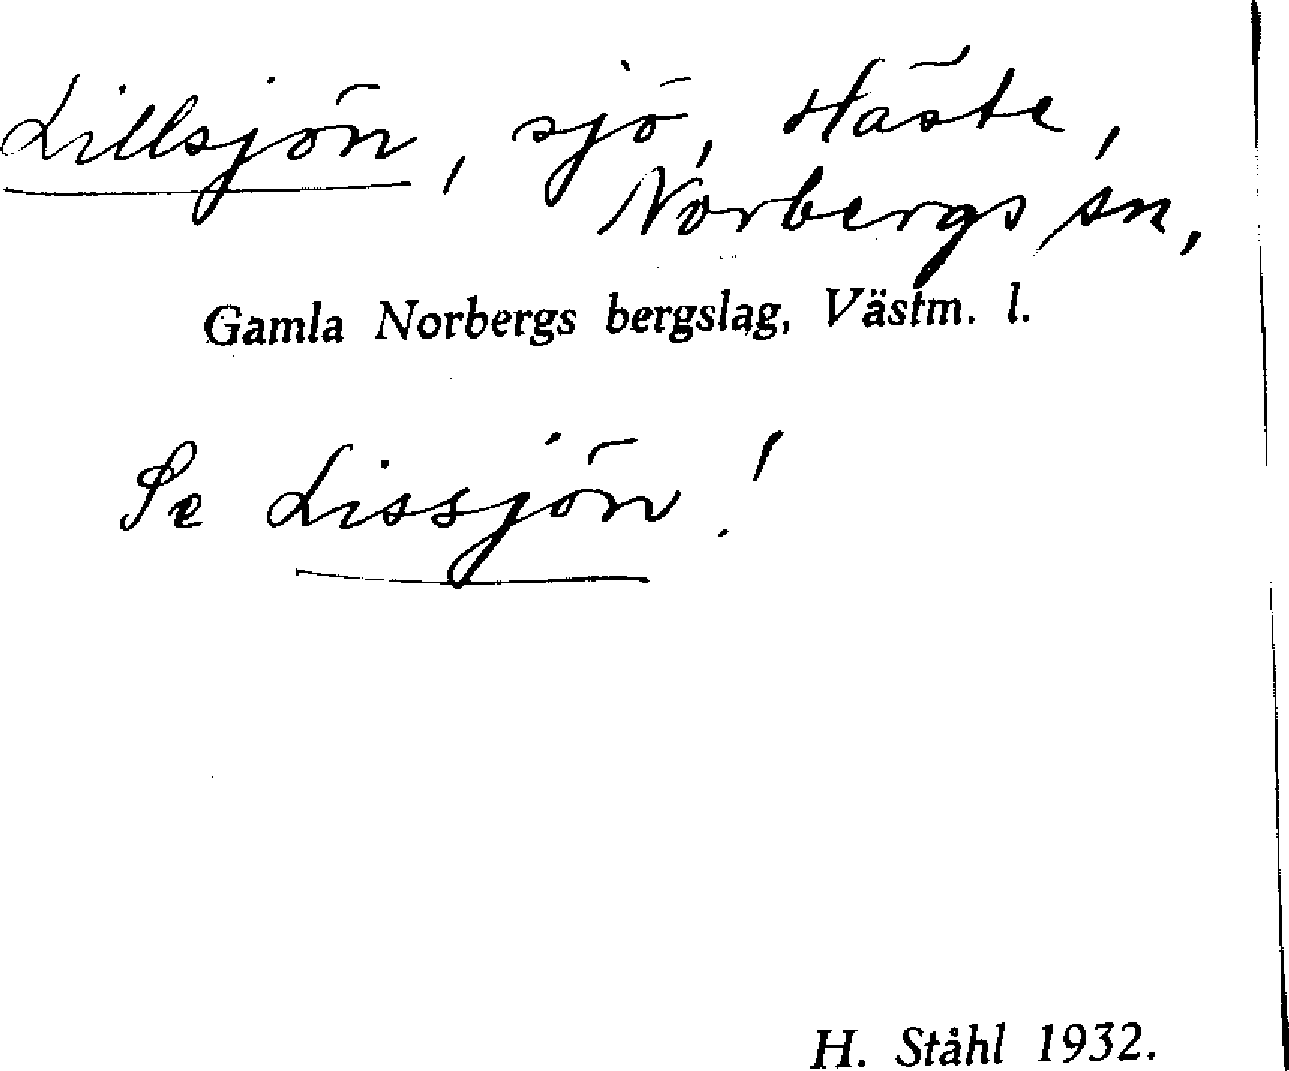 Lillsjön, sjö, Häste,
Norbergs sn,
Gamla Norbergs bergslag, Västm. l.
Se Lissjön!
H. Ståhl 1932.